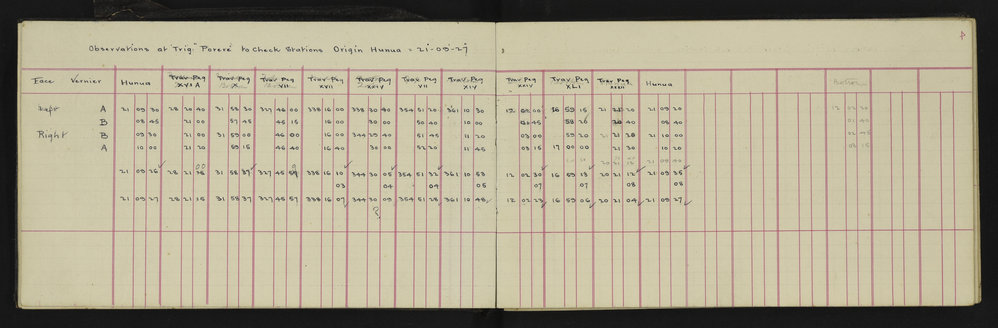 4
Observations at "Trig." Porere to Check Stations Origin Hunua = 21-09-27
Face Vernier Hunua Trav Peg XVI A Trav Peg X Trav Peg VII Trav Peg XVII Trav Peg XXIV Trav Peg VII Trav Peg XIV Trav Peg XXIV Trav Peg XLI Trav Peg Hunua Button
Left A 21 09 30 28 20 40 31 58 30 327 46 00 338 16 00 338 30 40 354 51 20 361 10 30 12 16 59 15 21 20 21 09 20 12 02 20
B 08 45 21 00 57 45 45 15 16 00 30 00 50 40 10 00 58 20 40 08 40 01 40
Right B 09 30 21 00 31 59 00 46 00 16 00 344 29 40 51 45 11 20 03 00 59 20 21 21 28 21 10 00 02 45
A 10 00 21 20 59 15 46 40 16 40 30 00 52 20 11 45 03 15 17 00 00 21 30 10 20 02 15
21 09 40
21 09 26 28 21 31 58 37 327 45 338 16 10 344 30 05 354 51 32 361 10 53 12 02 30 16 59 13 20 21 12 21 09 35
03 04 04 05 07 07 08 08
21 09 27 28 21 15 31 58 37 327 45 57 338 16 07 344 30 09 354 51 28 361 10 48 12 02 23 16 59 06 20 21 04 21 09 27